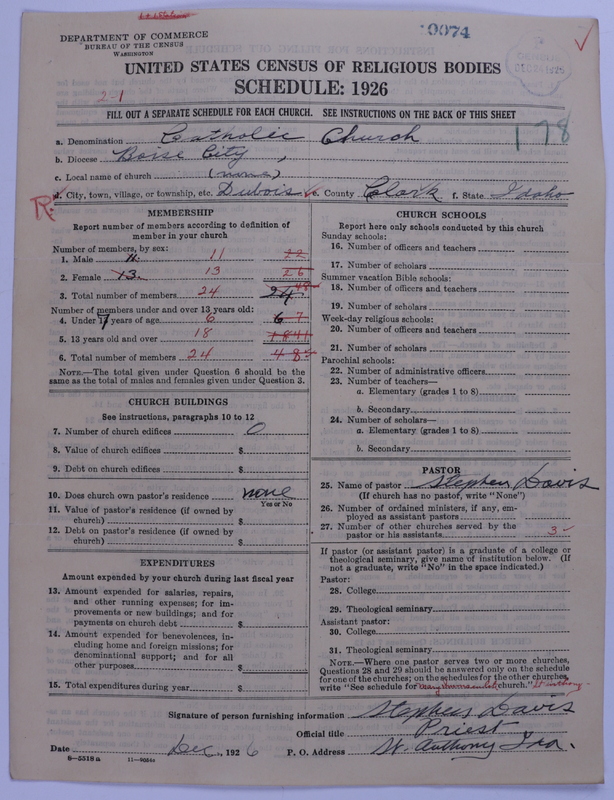 0074
DEPARTMENT OF COMMERCE
BUREAU OF THE CENSUS
WASHINGTON
UNITED STATES CENSUS OF RELIGIOUS BODIES
SCHEDULE: 1926
2-1
FILL OUT A SEPARATE SCHEDULE FOR EACH CHURCH. SEE INSTRUCTIONS ON THE BACK OF THIS SHEET
178
a. Denomination Catholic Church
b. Diocese Boise City,
c. Local name of church (none)
R. d. City, town, village, or township, etc. Dubois e. County Clark f. State Idaho
MEMBERSHIP
Report number of members according to definition of
member in your church
Number of members, by sex:
1. Male 11 11 22
2. Female 13 13 26
3. Total number of members 24 24 48
Number of members under and over 13 years old:
4. Under 17 years of age 6 6 7
5. 13 years old and over 18 18 41
6. Total number of members 24 48
NOTE.—The total given under Question 6 should be
same as the total of males and females given under Question 3.
CHURCH BUILDINGS
See instructions, paragraphs 10 to 12
7. Number of church edifices 0
8. Value of church edifices $
9. Debt on church edifices $
10. Does church own pastor's residence none
Yes or No
11. Value of pastor's residence (if owned by
church) $
12. Debt on pastor's residence (if owned by
church) $
EXPENDITURES
Amount expended by your church during last fiscal year
13. Amount expended for salaries, repairs,
and other running expenses; for im-
provements or new buildings; and for
payments on church debt $
14. Amount expended for benevolences, in-
cluding home and foreign missions; for
denominational support; and for all
other purposes $
15. Total expenditures during year $
CHURCH SCHOOLS
Report here only schools conducted by this church
Sunday schools:
16. Number of officers and teachers
17. Number of scholars
Summer vacation Bible schools:
18. Number of officers and teachers
19. Number of scholars
Week-day religious schools:
20. Number of officers and teachers
21. Number of scholars
Parochial schools:
22. Number of administrative officers
23. Number of teachers—
a. Elementary (grades 1 to 8)
b. Secondary
24. Number of scholars—
a. Elementary (grades 1 to 8)
b. Secondary
PASTOR
25. Name of pastor Stephen Davis
(If church has no pastor, write "None")
26. Number of ordained ministers, if any, em-
ployed as assistant pastors
27. Number of other churches served by the
pastor or his assistants 3
If pastor (or assistant pastor) is a graduate of a college or
theological seminary, give name of institution below. (If
not a graduate, write "No" in the space indicated.)
Pastor:
28. College
29. Theological seminary
Assistant pastor:
30. College
31. Theological seminary
NOTE.—Where one pastor serves two or more churches,
Questions 28 and 29 should be answered only on the schedule
for one of the churches; on the schedules for the other churches,
write "See schedule for church." St Anthony
Signature of person furnishing information Stephen Davis
Official title Priest
Date Dec, 1926 P. O. Address St. Anthony Ida.
8-5518a 11-9054a